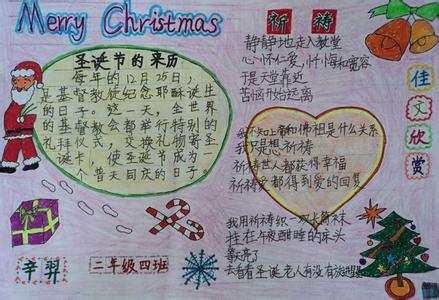 Merry Christmas
圣诞节的来历
每年的12月25日,
是基督教徒纪念耶稣诞生
的日子。这一天,全世界
的基督教会都举行特别的
礼拜仪式,交换礼物寄圣
诞卡,使圣诞节成为
个普天同庆的日子。
辛羿
二年级四班
祈祷
静静地走入教堂
心怀仁爱,忏悔和宽容
于是天堂靠近
苦恼开始远离
佳文欣赏
我不知上帝和佛祖是什么关系
我只是想祈祷
祈祷世人都获得幸福
祈祷爱都得到爱的回复
我用祈祷织一双长筒袜
挂在午夜甜睡的床头
天亮了
去看看圣诞老人有没有放进